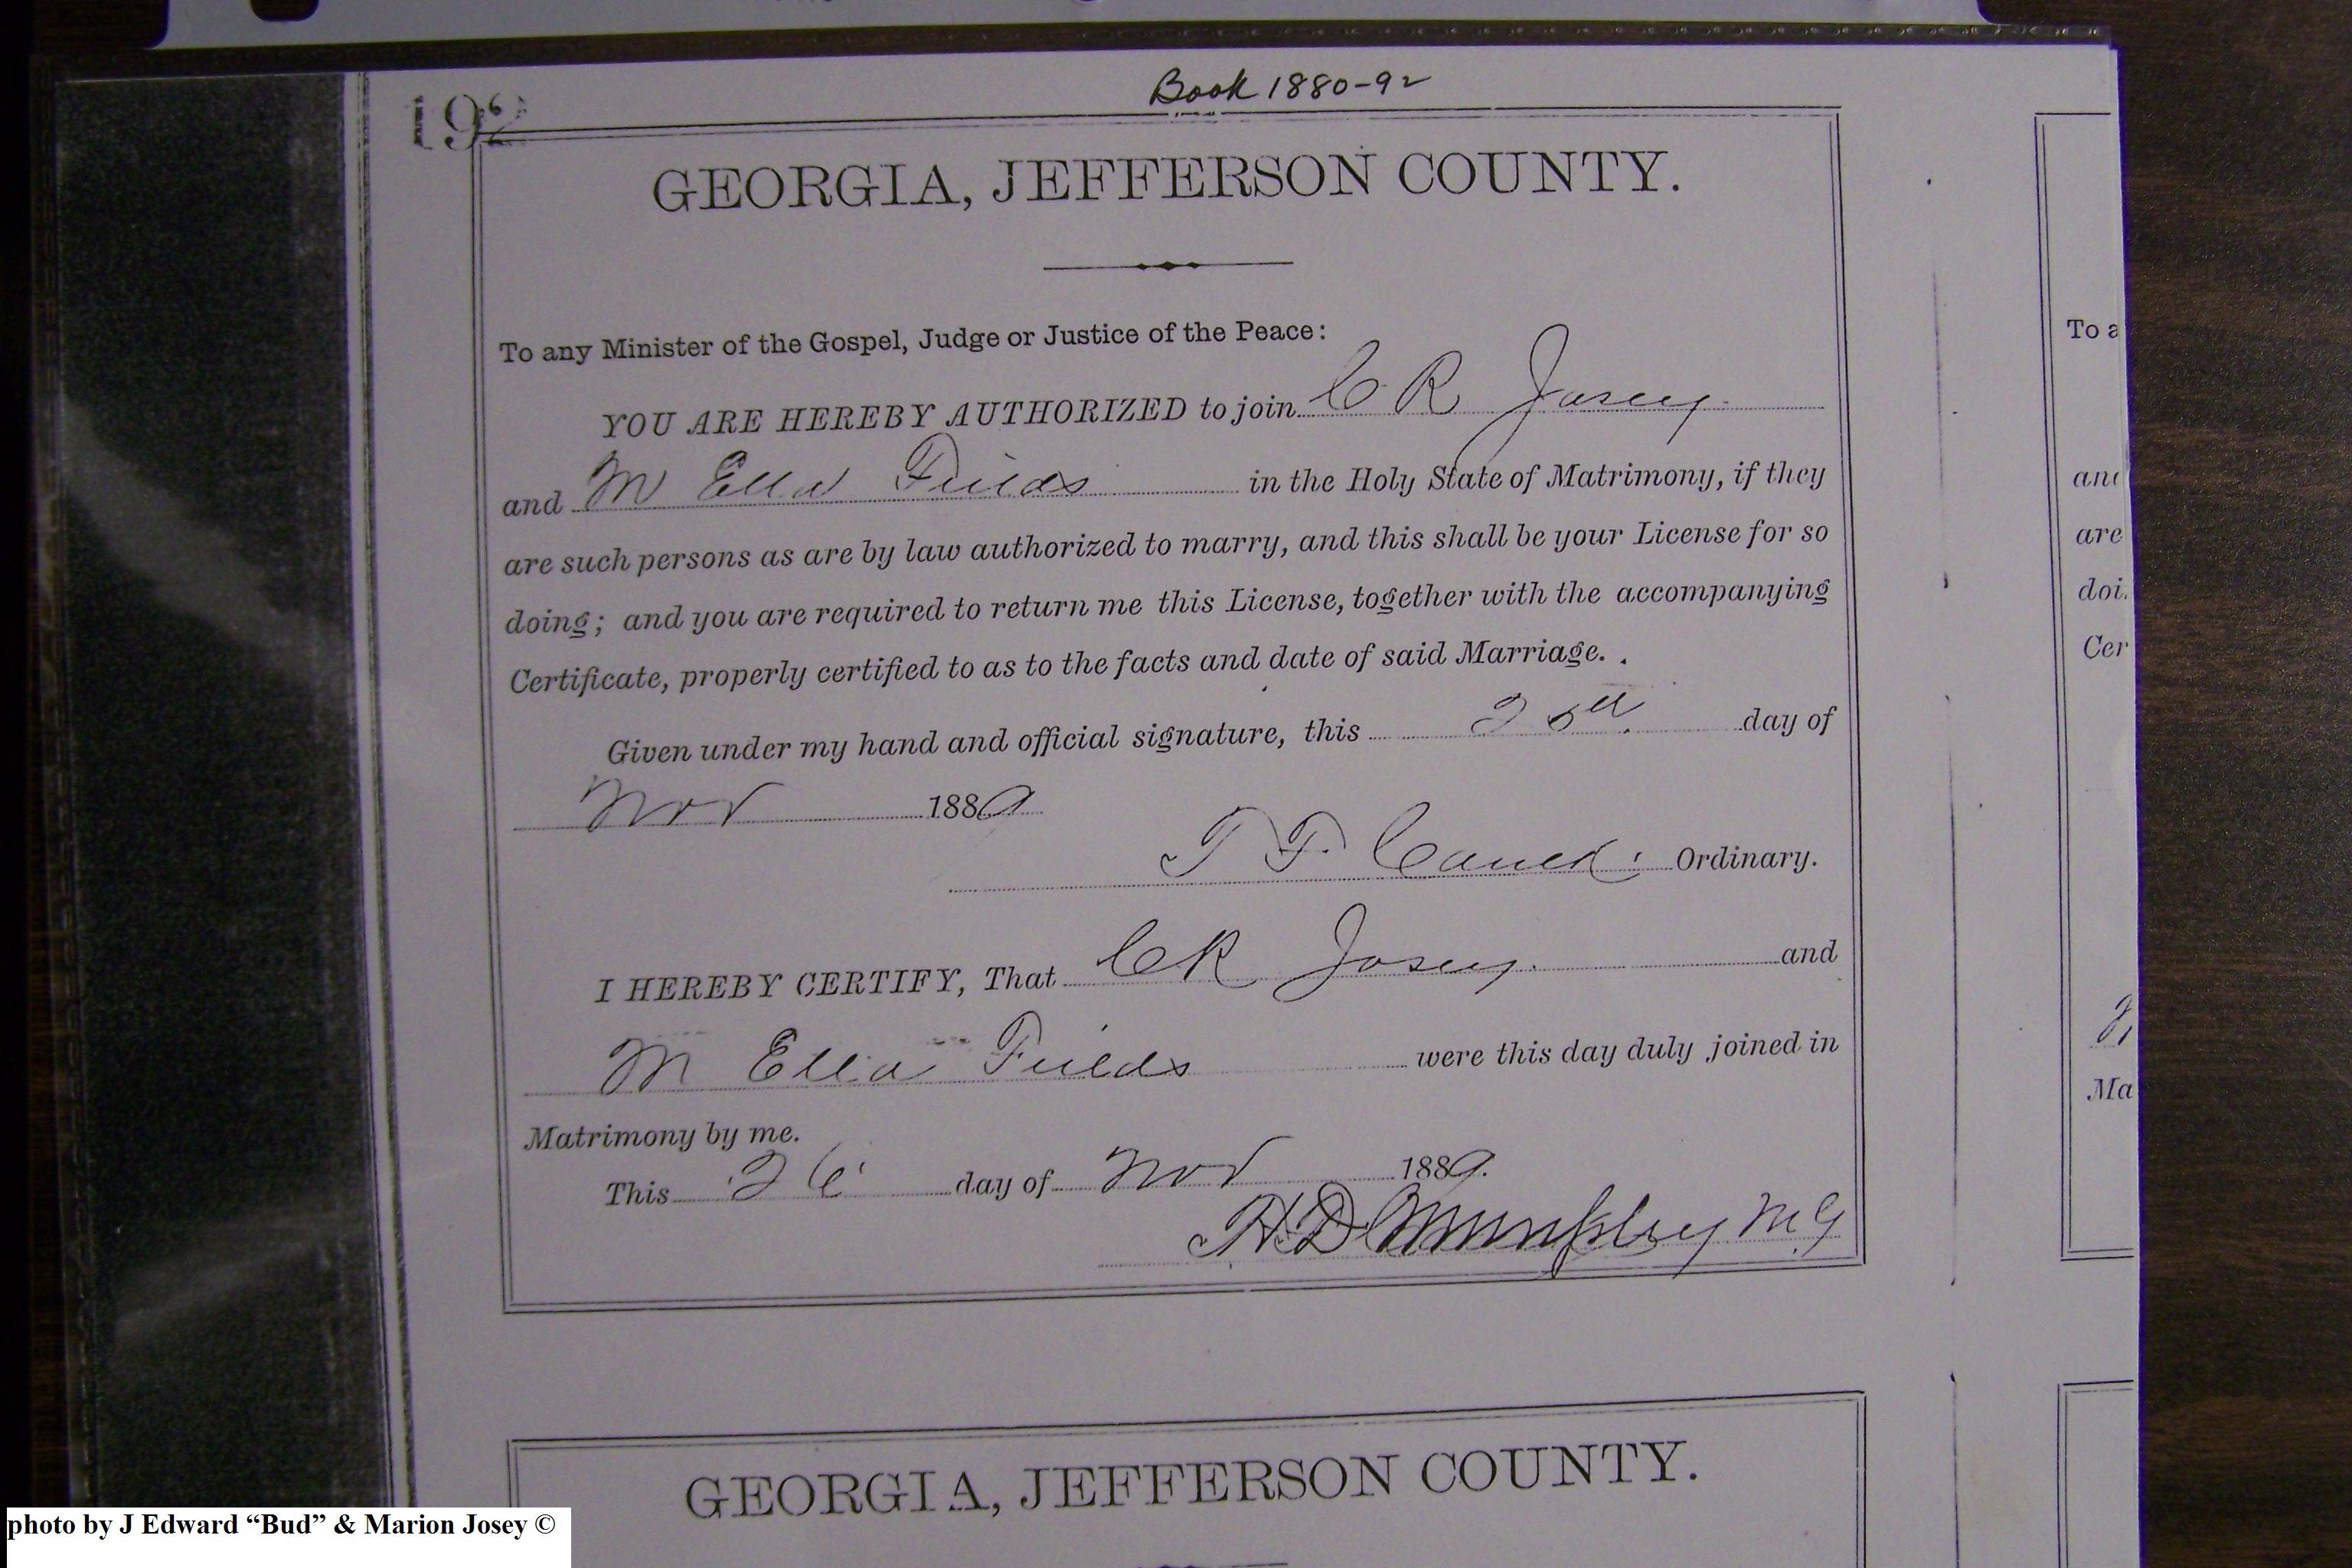 Book 1880-92
192
GEORGIA, JEFFERSON COUNTY.
To any Minister of the Gospel, Judge or Justice of the Peace:
YOU ARE HEREBY AUTHORIZED to join C R Josey
and M Ella Fields in the Holy State of Matrimony, if they
are such persons as are by law authorized to marry, and this shall be your License for so
doing; and you are required to return me this License, together with the accompanying
Certificate, properly certified to as to the facts and date of said Marriage.
Given under my hand and official signature, this 25th day of
Nov 1889
T F Ordinary.
I HEREBY CERTIFY, That C R Josey and
M Ella Fields were this day duly joined in
Matrimony by me.
This 26 day of Nov 1889.
M.G
GEORGIA, JEFFERSON COUNTY.
To a
and
are
doi
Cer
Ma
photo by J Edward “Bud” & Marion Josey ©